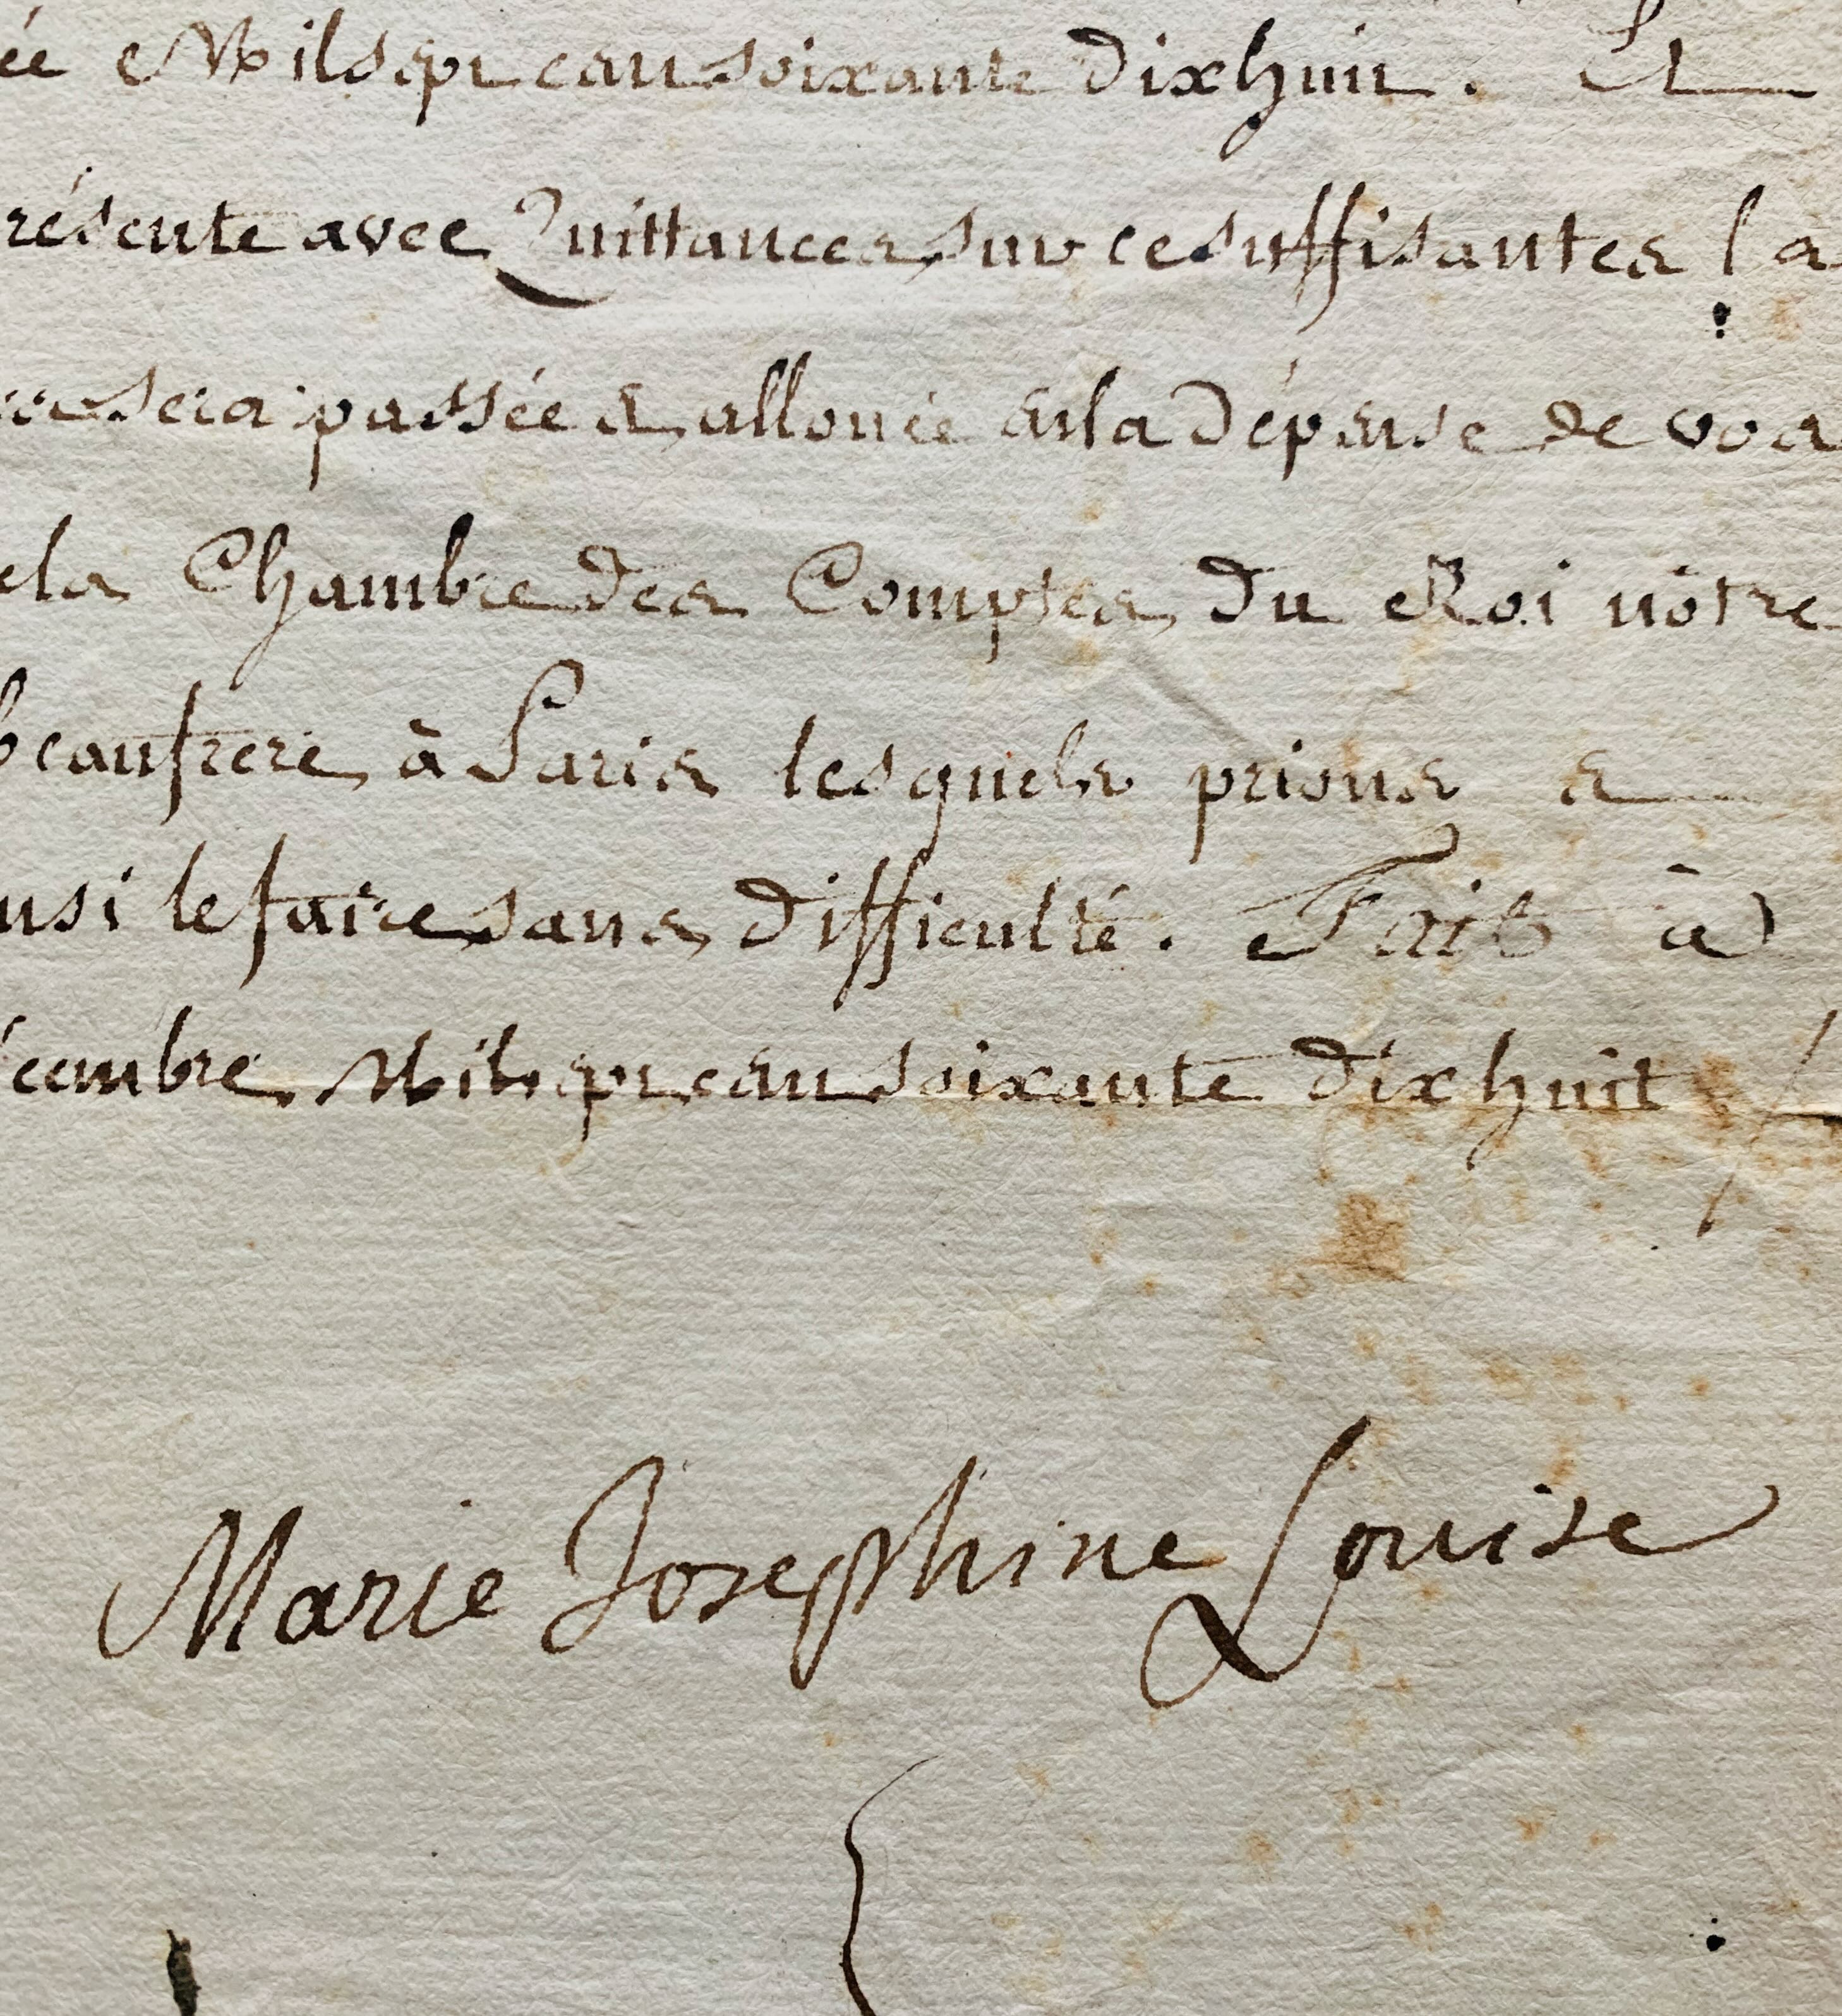 ée Milsept cent soixante dixhuit. Et
résente avec Quittances sur ce suffisantes la
sera passée et allouée en la dépense de vos
ela Chambre des Comptes du Roi nôtre
beaufrere à Paris lesquels prions et
nsi le faire sans difficulté. Fait à
écembre Milsept cent soixante dixhuit
Marie Josephine Louise